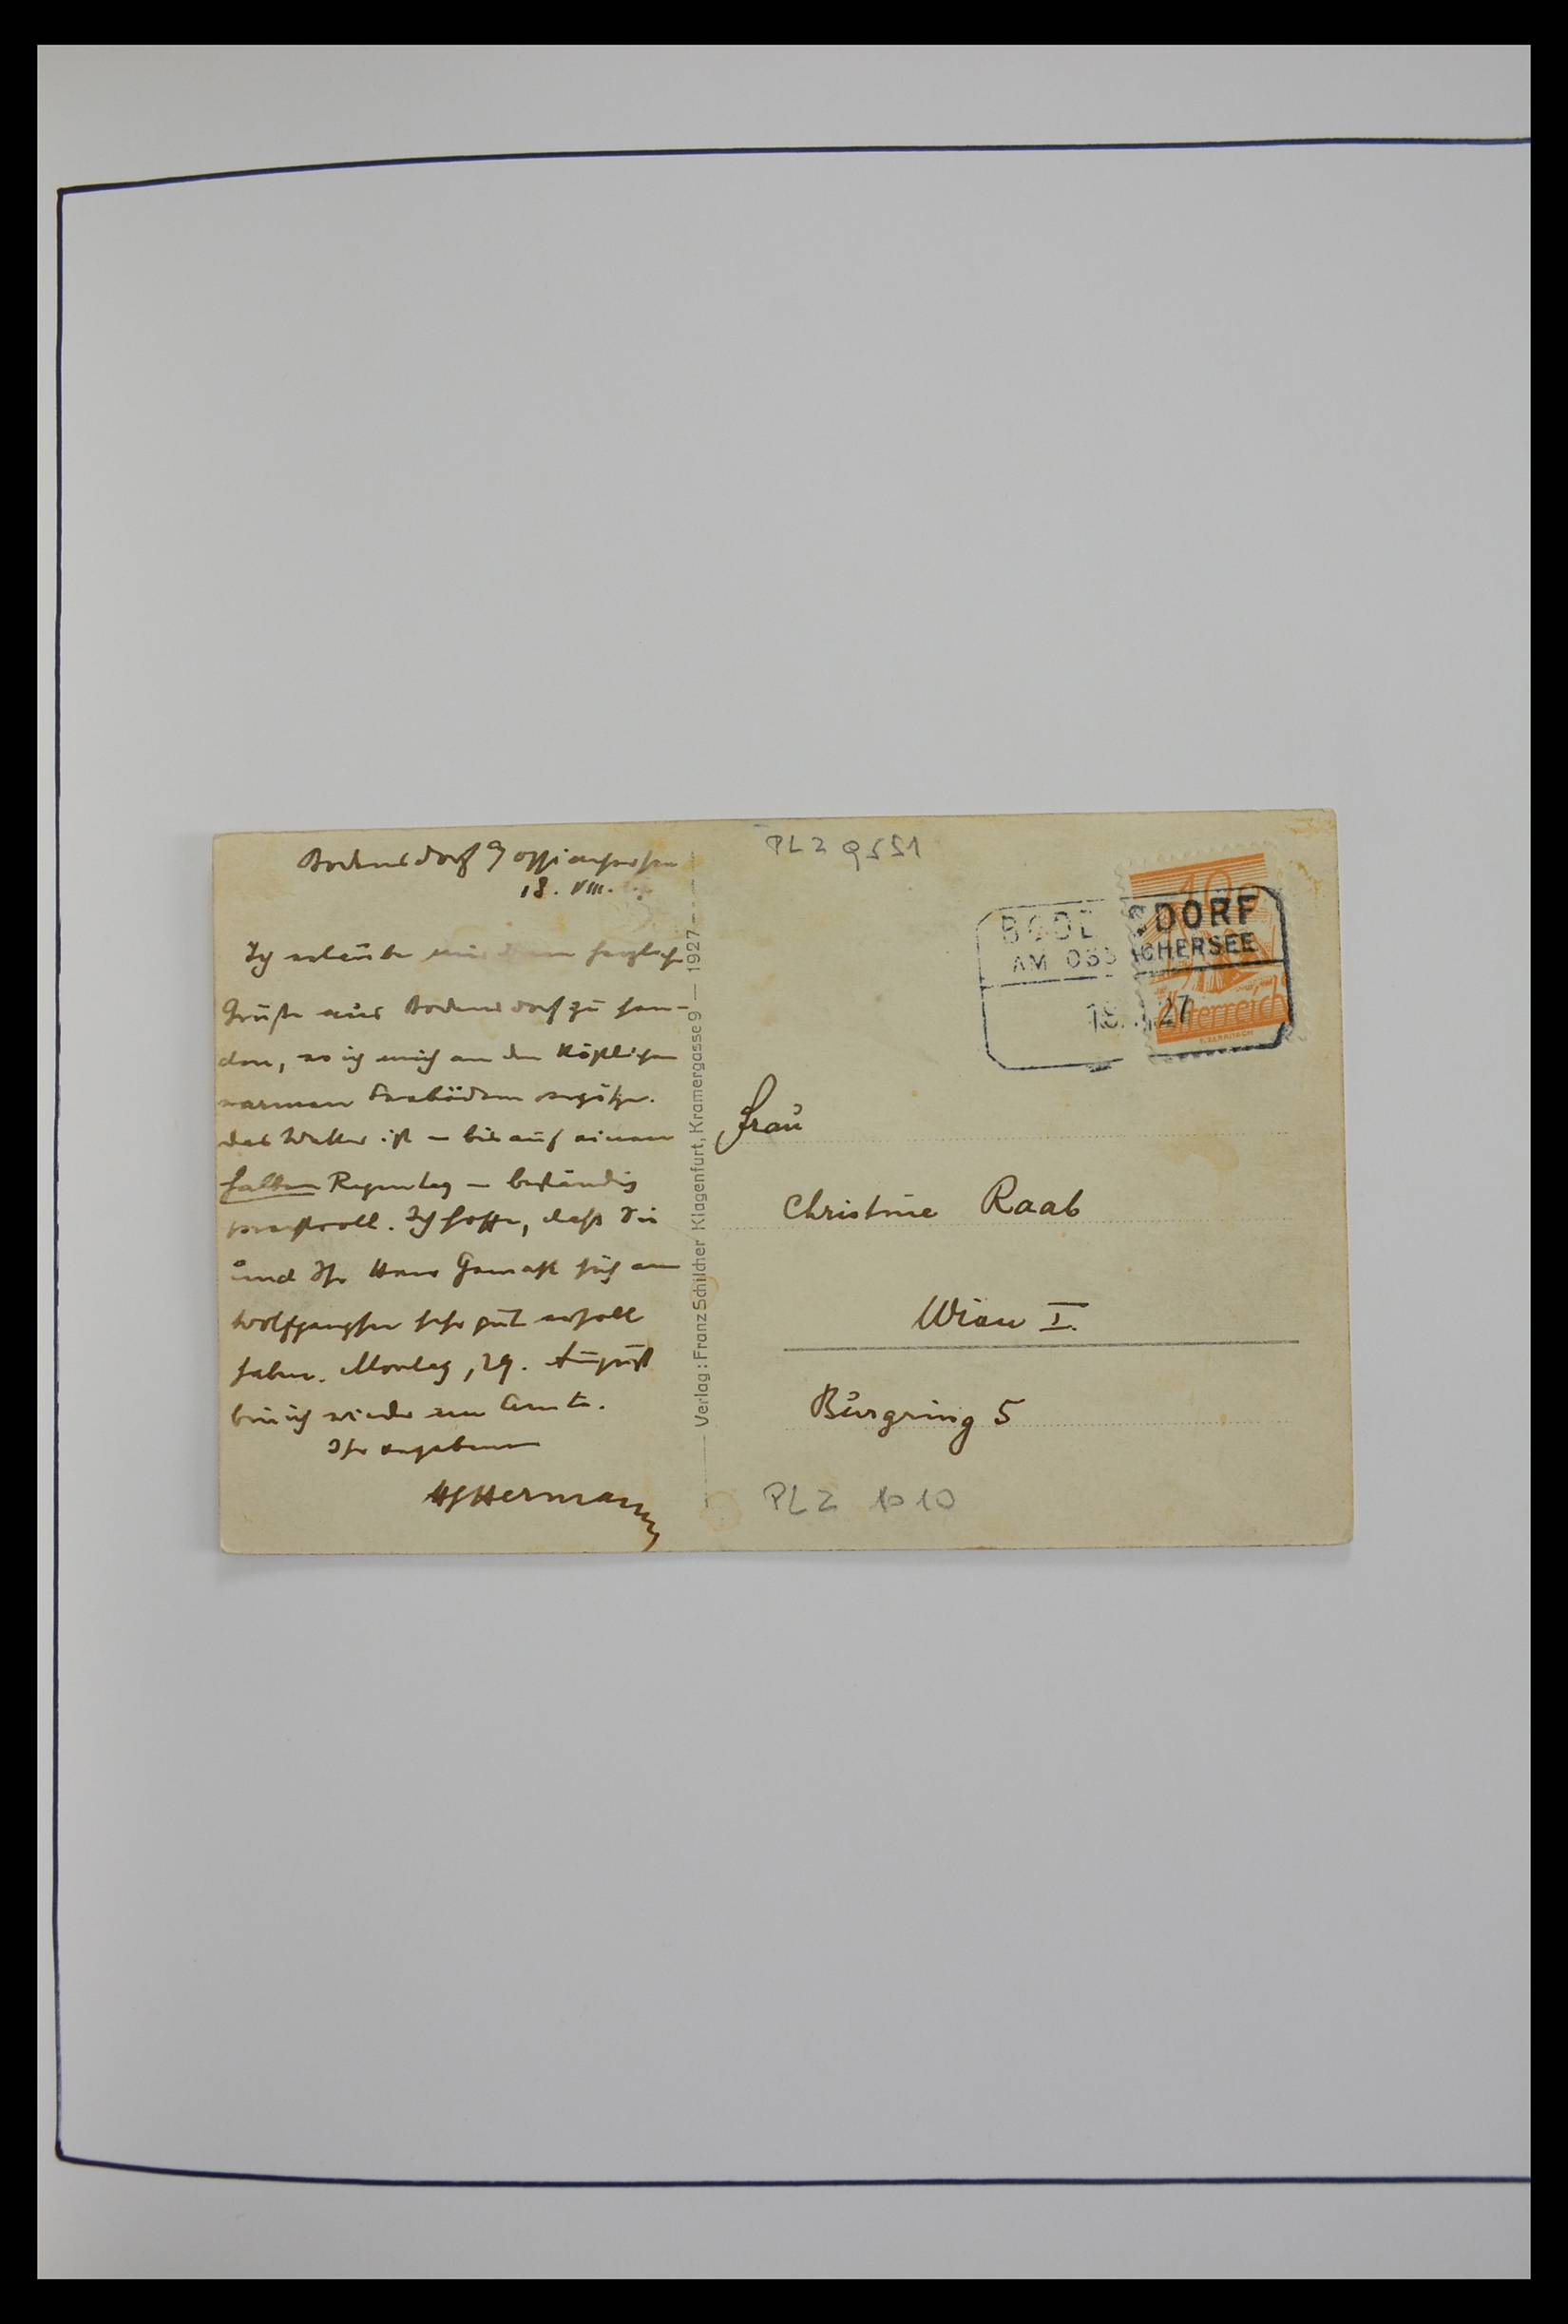 Bodensdorf a/Ossiachersee
18. VIII.
Ich erlaube mir Ihnen herzliche
Grüße aus Bodensdorf zu sen-
den, wo ich mich an den köstlichen
warmen Seebädern ergötze.
Das Wetter ist – bis auf einen
halben Regentag – beständig
prachtvoll. Ich hoffe, daß Sie
und Ihr Herr Gemahl sich am
Wolfgangsee sehr gut erholt
haben. Montag, 29. August
bin ich wieder im Amte.
Ihr ergebener
HJHermann
Verlag: Franz Schilcher Klagenfurt, Kramergasse 9 — 1927
PLZ 9551
10
Österreich
BODE SDORF
AM OSSIACHERSEE
18. 27
Frau
Christine Raab
Wien I.
Burgring 5
PLZ 1010